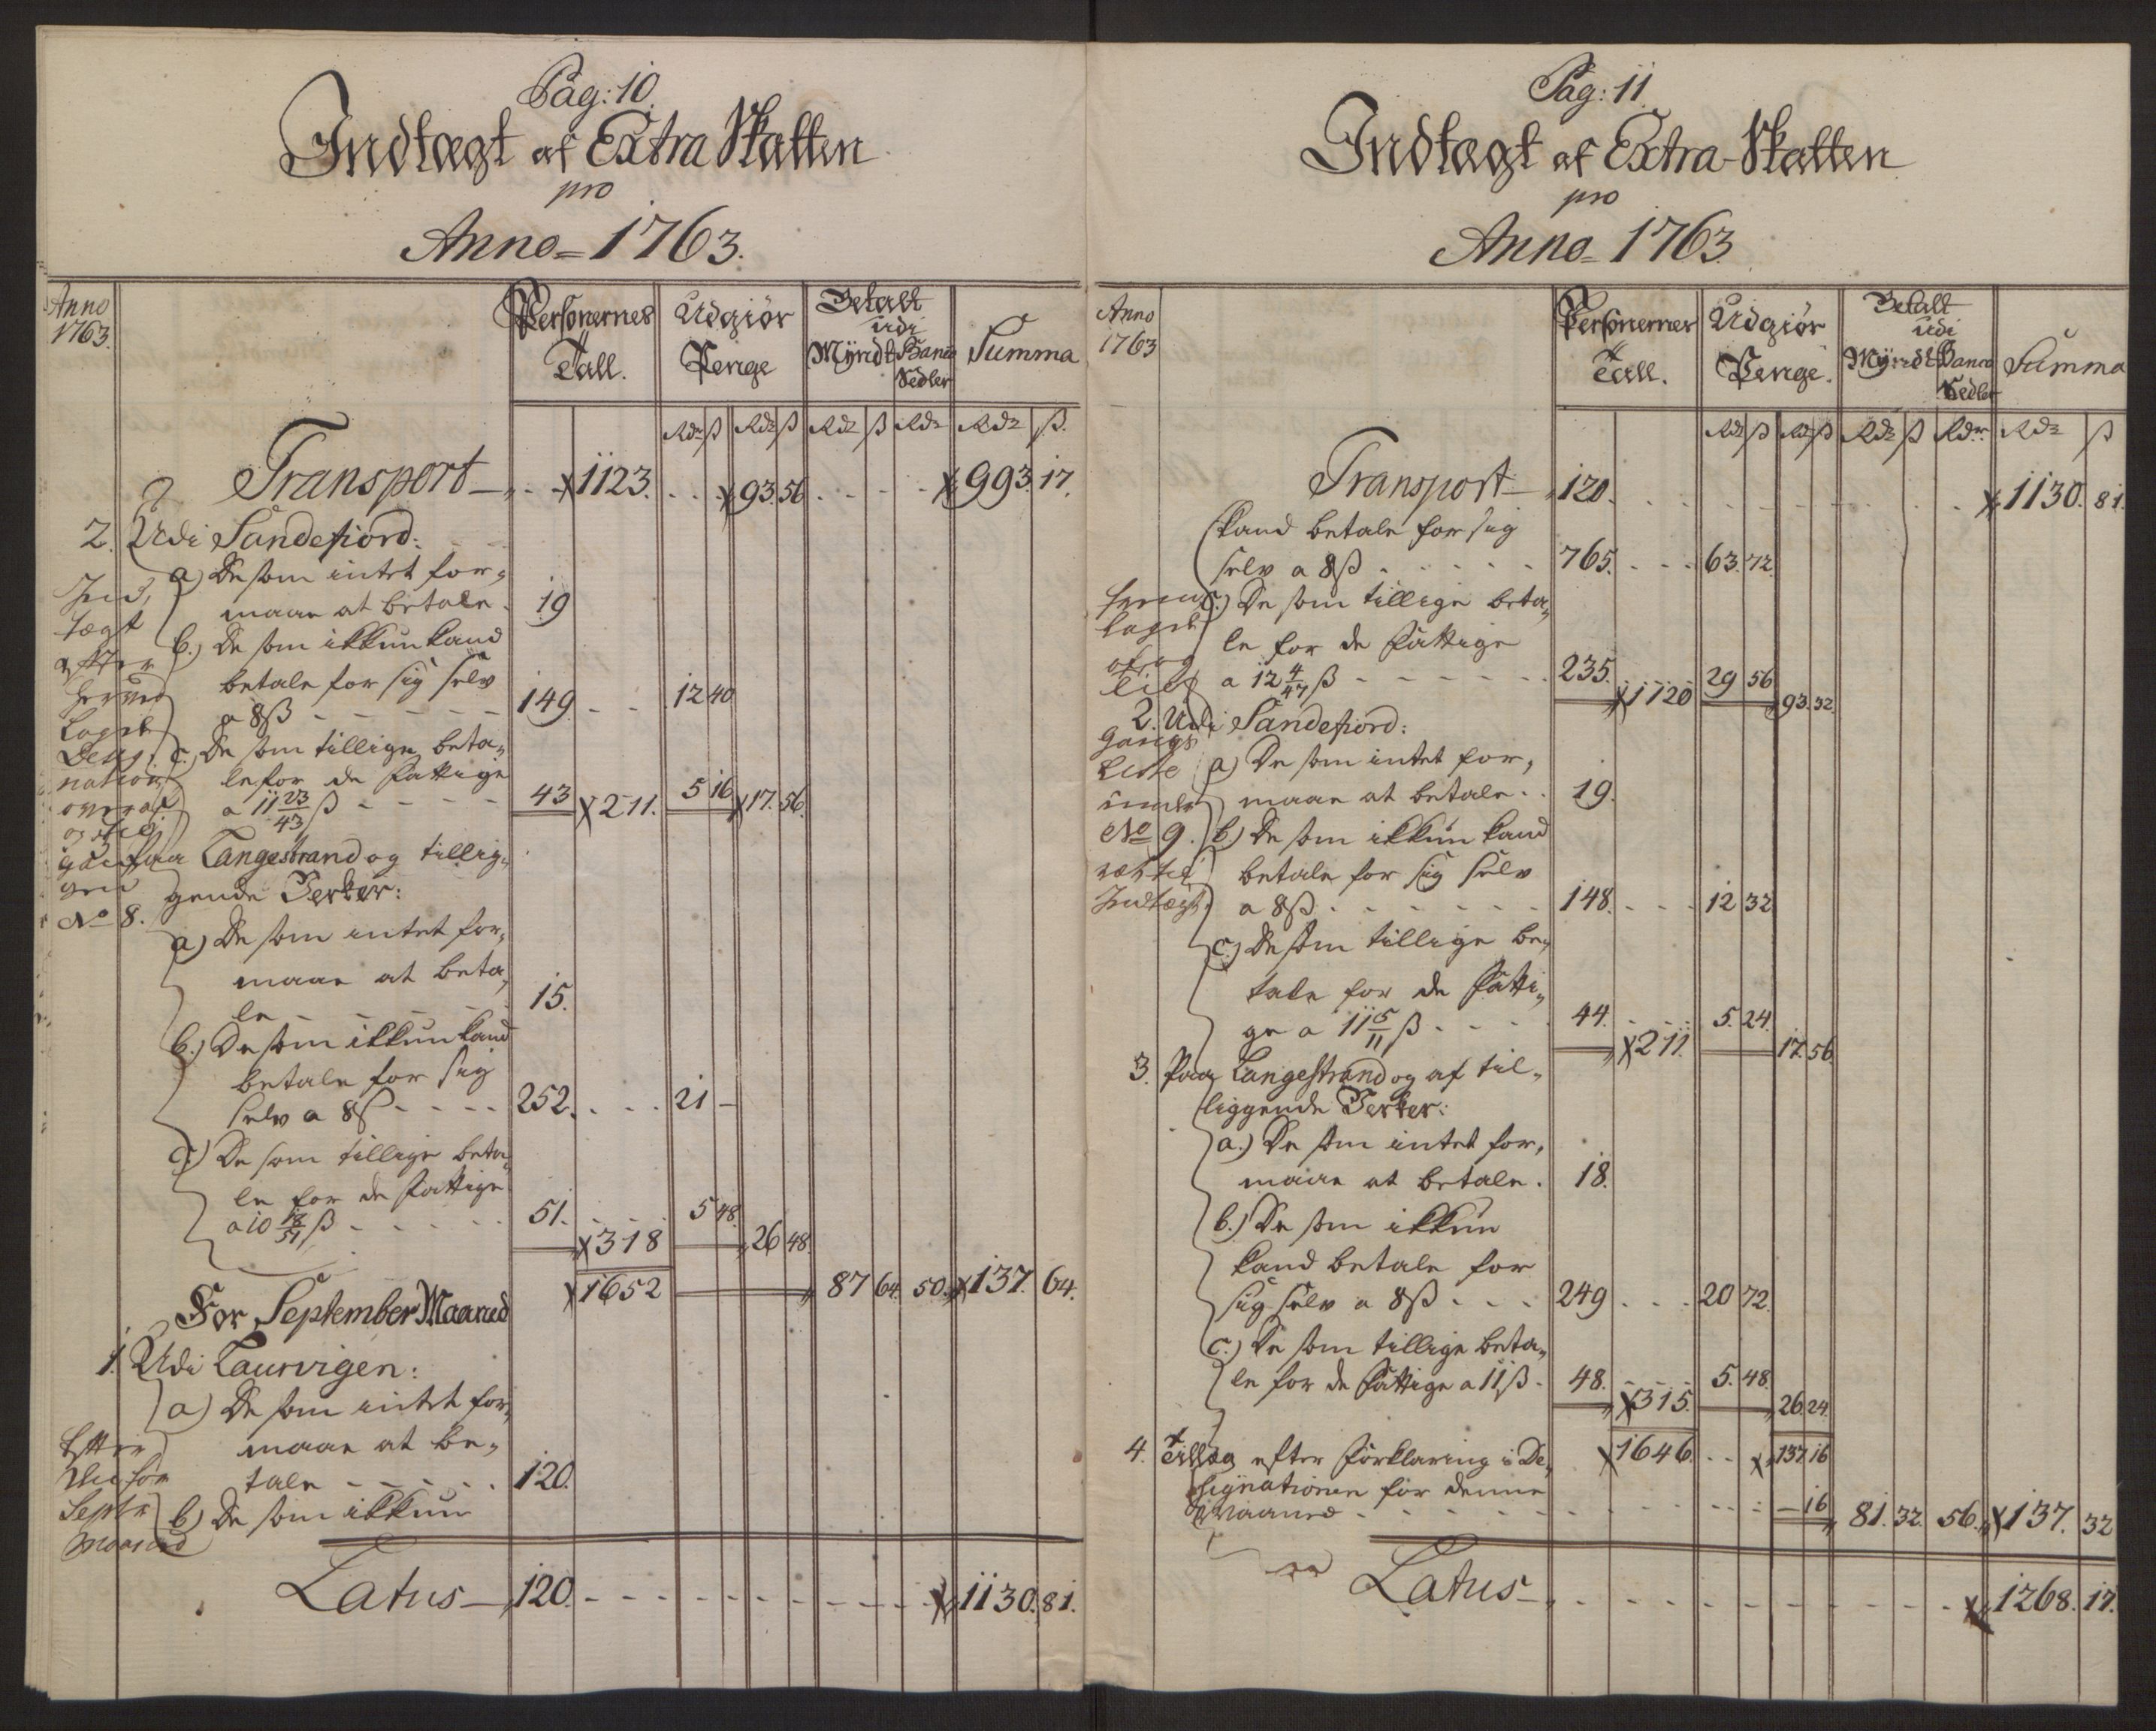 Pag: 10.
Indtægt af Extra Skatten
pro
Anno = 1763.
Anno 1763.
Personernes Tall.
Udgiør Penge
Betalt udi
Myndt Banco Sedler
Summa
Rdr ß Rdr ß Rdr ß Rdr Rdr ß.
Transport 1123. 93. 56. 993. 17.
2. Udi Sandefiord:
a) De som intet for-
maae at betale. 19
b.) De som ikkun kand
betale for sig selv
a 8ß 149 12 40
c. De som tillige beta-
le for de Fattige
a 11 23/43 ß 43 211. 5 16 17. 56.
Indtægt efter herved Lagde Designation over af og
No 8.
Paa Langestrand og tillig-
gende Verker:
a) De som intet for-
maae at beta-
le 15.
b.) De som ikkun kand
betale for sig
selv a 8ß 252. 21 –
c.) De som tillige beta-
le for de Fattige
a 10 18/51 ß 51. 318 5 48. 26 48.
1652 87 64. 50. 137. 64.
For September Maaned
1. Udi Laurvigen:
a) De som intet for-
maae at be-
tale 120.
b) De som ikkun
Septbr Maaned
Latus 120. 1130. 81.
Pag: 11.
Indtægt af Extra-Skatten
pro
Anno = 1763.
Anno 1763
Personernes Tall.
Udgiør Penge.
Betalt udi
Myndt Banco Sedler
Summa
Rdr ß Rdr ß Rdr ß Rdr. Rdr ß
Transport 120. 1130. 81.
kand betale for sig
selv a 8ß 765. 63. 72.
c.) De som tillige beta-
le for de Fattige
a 12 4/47 ß 235. 1120 29 56 93. 32.
2. Udi Sandefiord:
a) De som intet for-
maae at betale. 19.
b) De som ikkun kand
betale for sig selv
a 8ß 148. 12 32
c.) De som tillige be-
tale for de Fatti-
ge a 11 5/11 ß 44. 211. 5. 24. 17. 56
Gangs Liste under
No 9.
Indtægt.
3. Paa Langestrand og af til-
liggende Verker:
a.) De som intet for-
maae at betale. 18.
b.) De som ikkun
kand betale for
sig selv a 8ß 249 20 72.
c.) De som tillige beta-
le for de Fattige a 11ß. 48. 315. 5. 48. 26. 24.
1646. 137 16
4. Tillæg efter Forklaring i De-
signationen for denne
Maaned – 16 81. 32. 56. 137. 32
Latus 1268. 17.